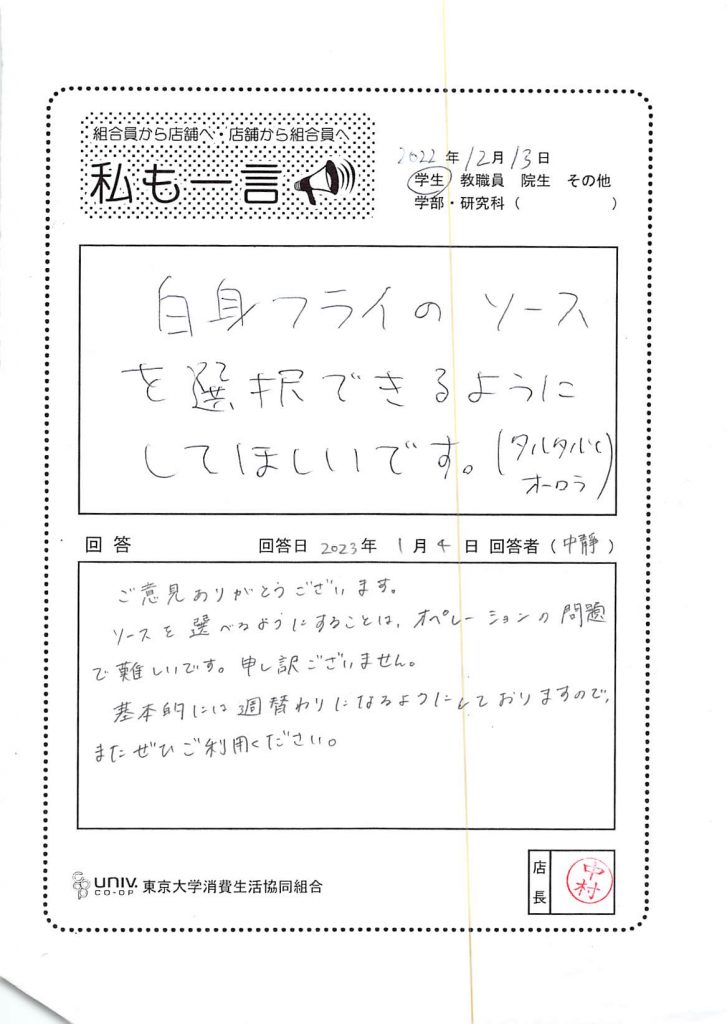 組合員から店舗へ・店舗から組合員へ
私も一言
2022年12月13日
学生 教職員 院生 その他
学部・研究科（ ）
白身フライのソース
を選択できるように
してほしいです。(タルタルと
オーロラ)
回答 回答日 2023年 1月 4日 回答者（中静）
ご意見ありがとうございます。
ソースを選べるようにすることは、オペレーションの問題
で難しいです。申し訳ございません。
基本的には週替わりになるようにしておりますので、
またぜひご利用ください。
UNIV.
CO-OP
東京大学消費生活協同組合
店長
中村